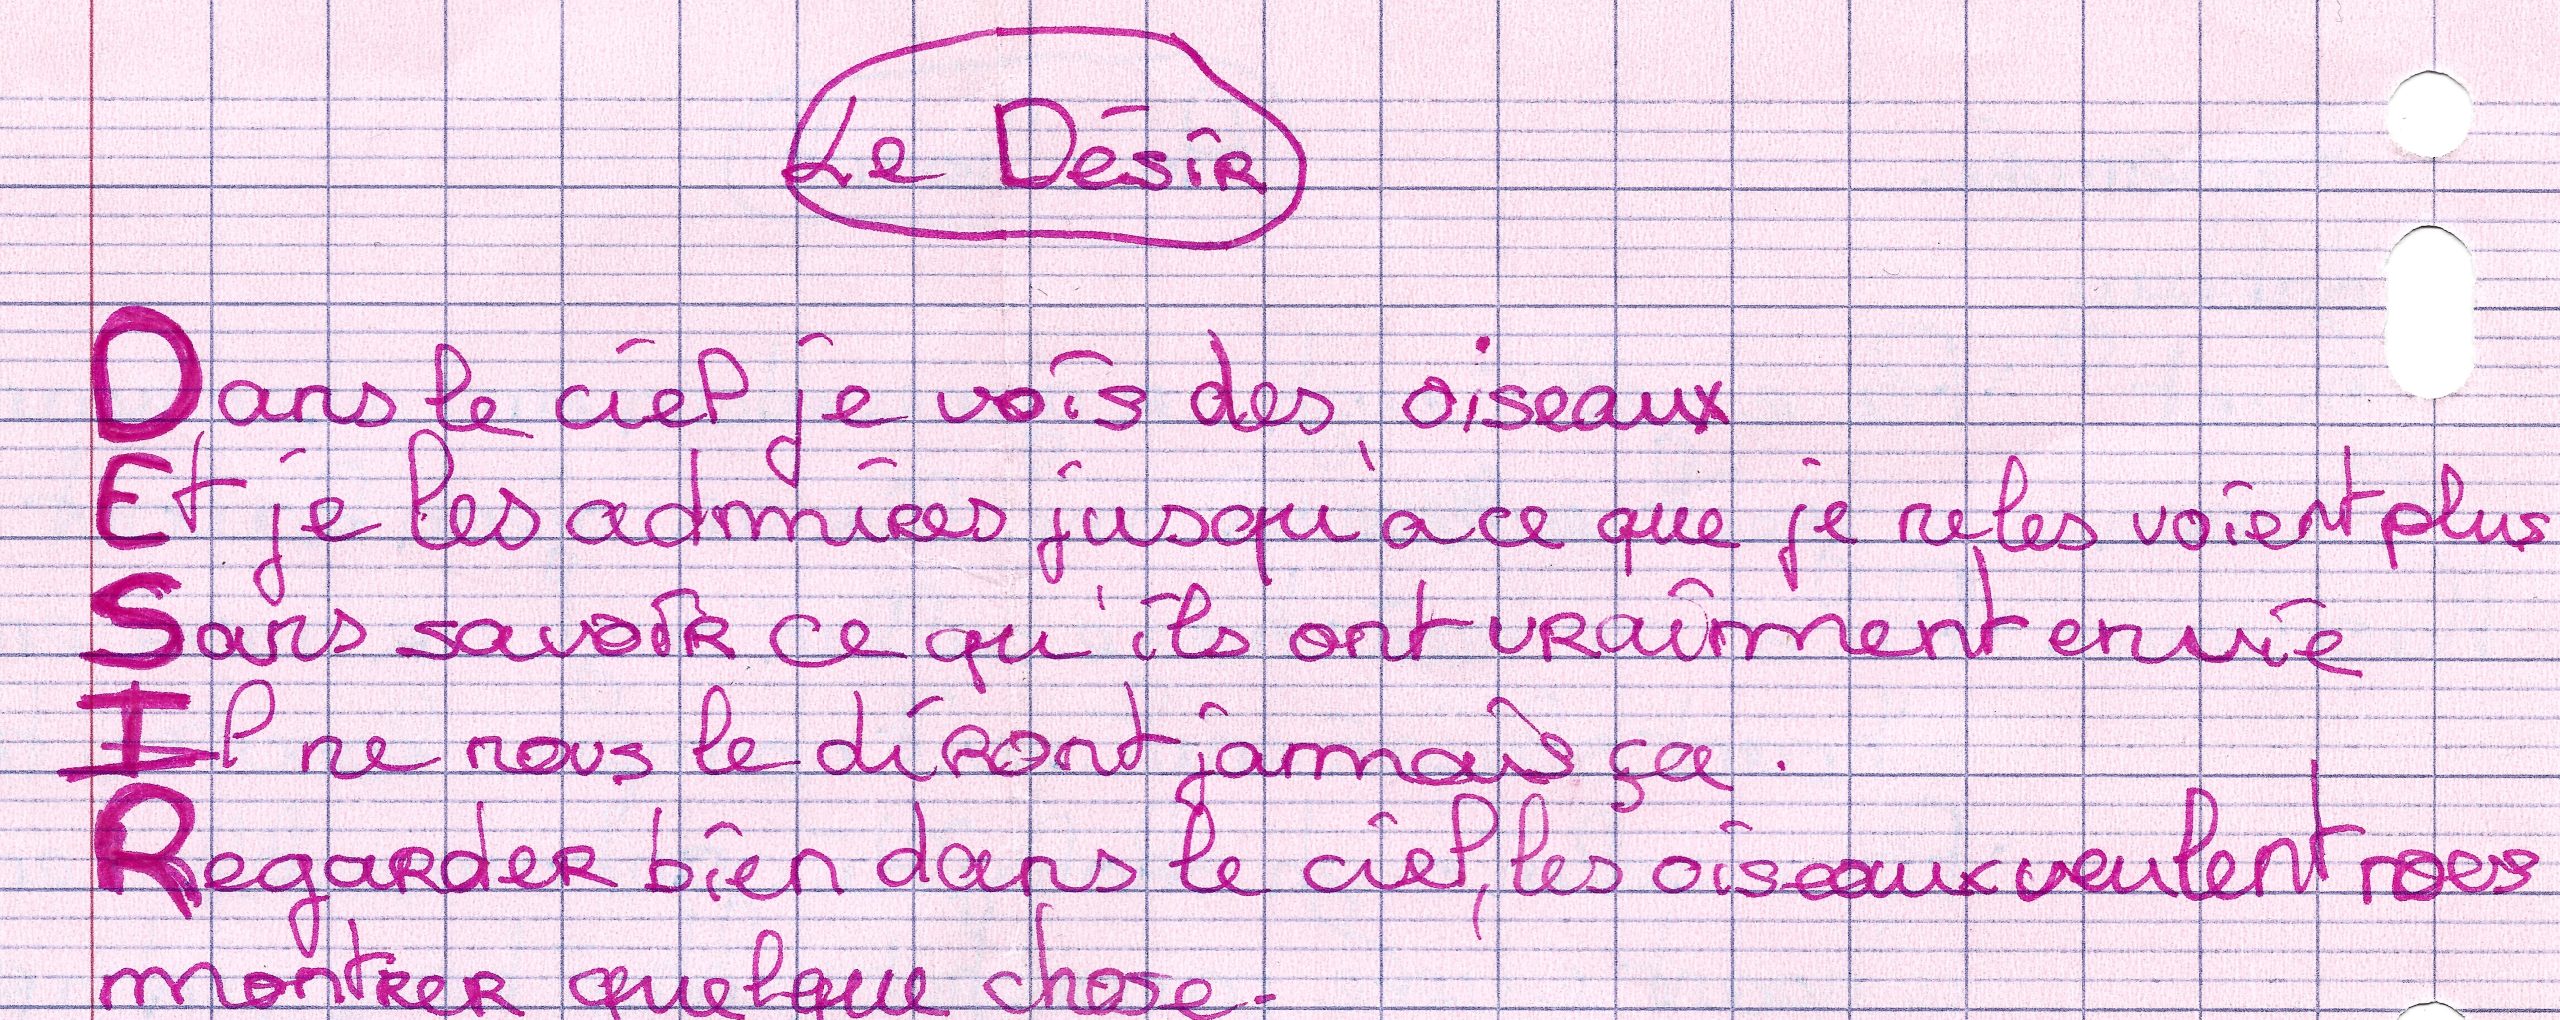 Le Désir
Dans le ciel je vois des oiseaux
Et je les admires jusqu'a ce que je ne les voient plus
Sans savoir ce qu'ils ont vraiment envie
Il ne nous le diront jamais ça.
Regarder bien dans le ciel, les oiseaux veulent nous
montrer quelque chose.